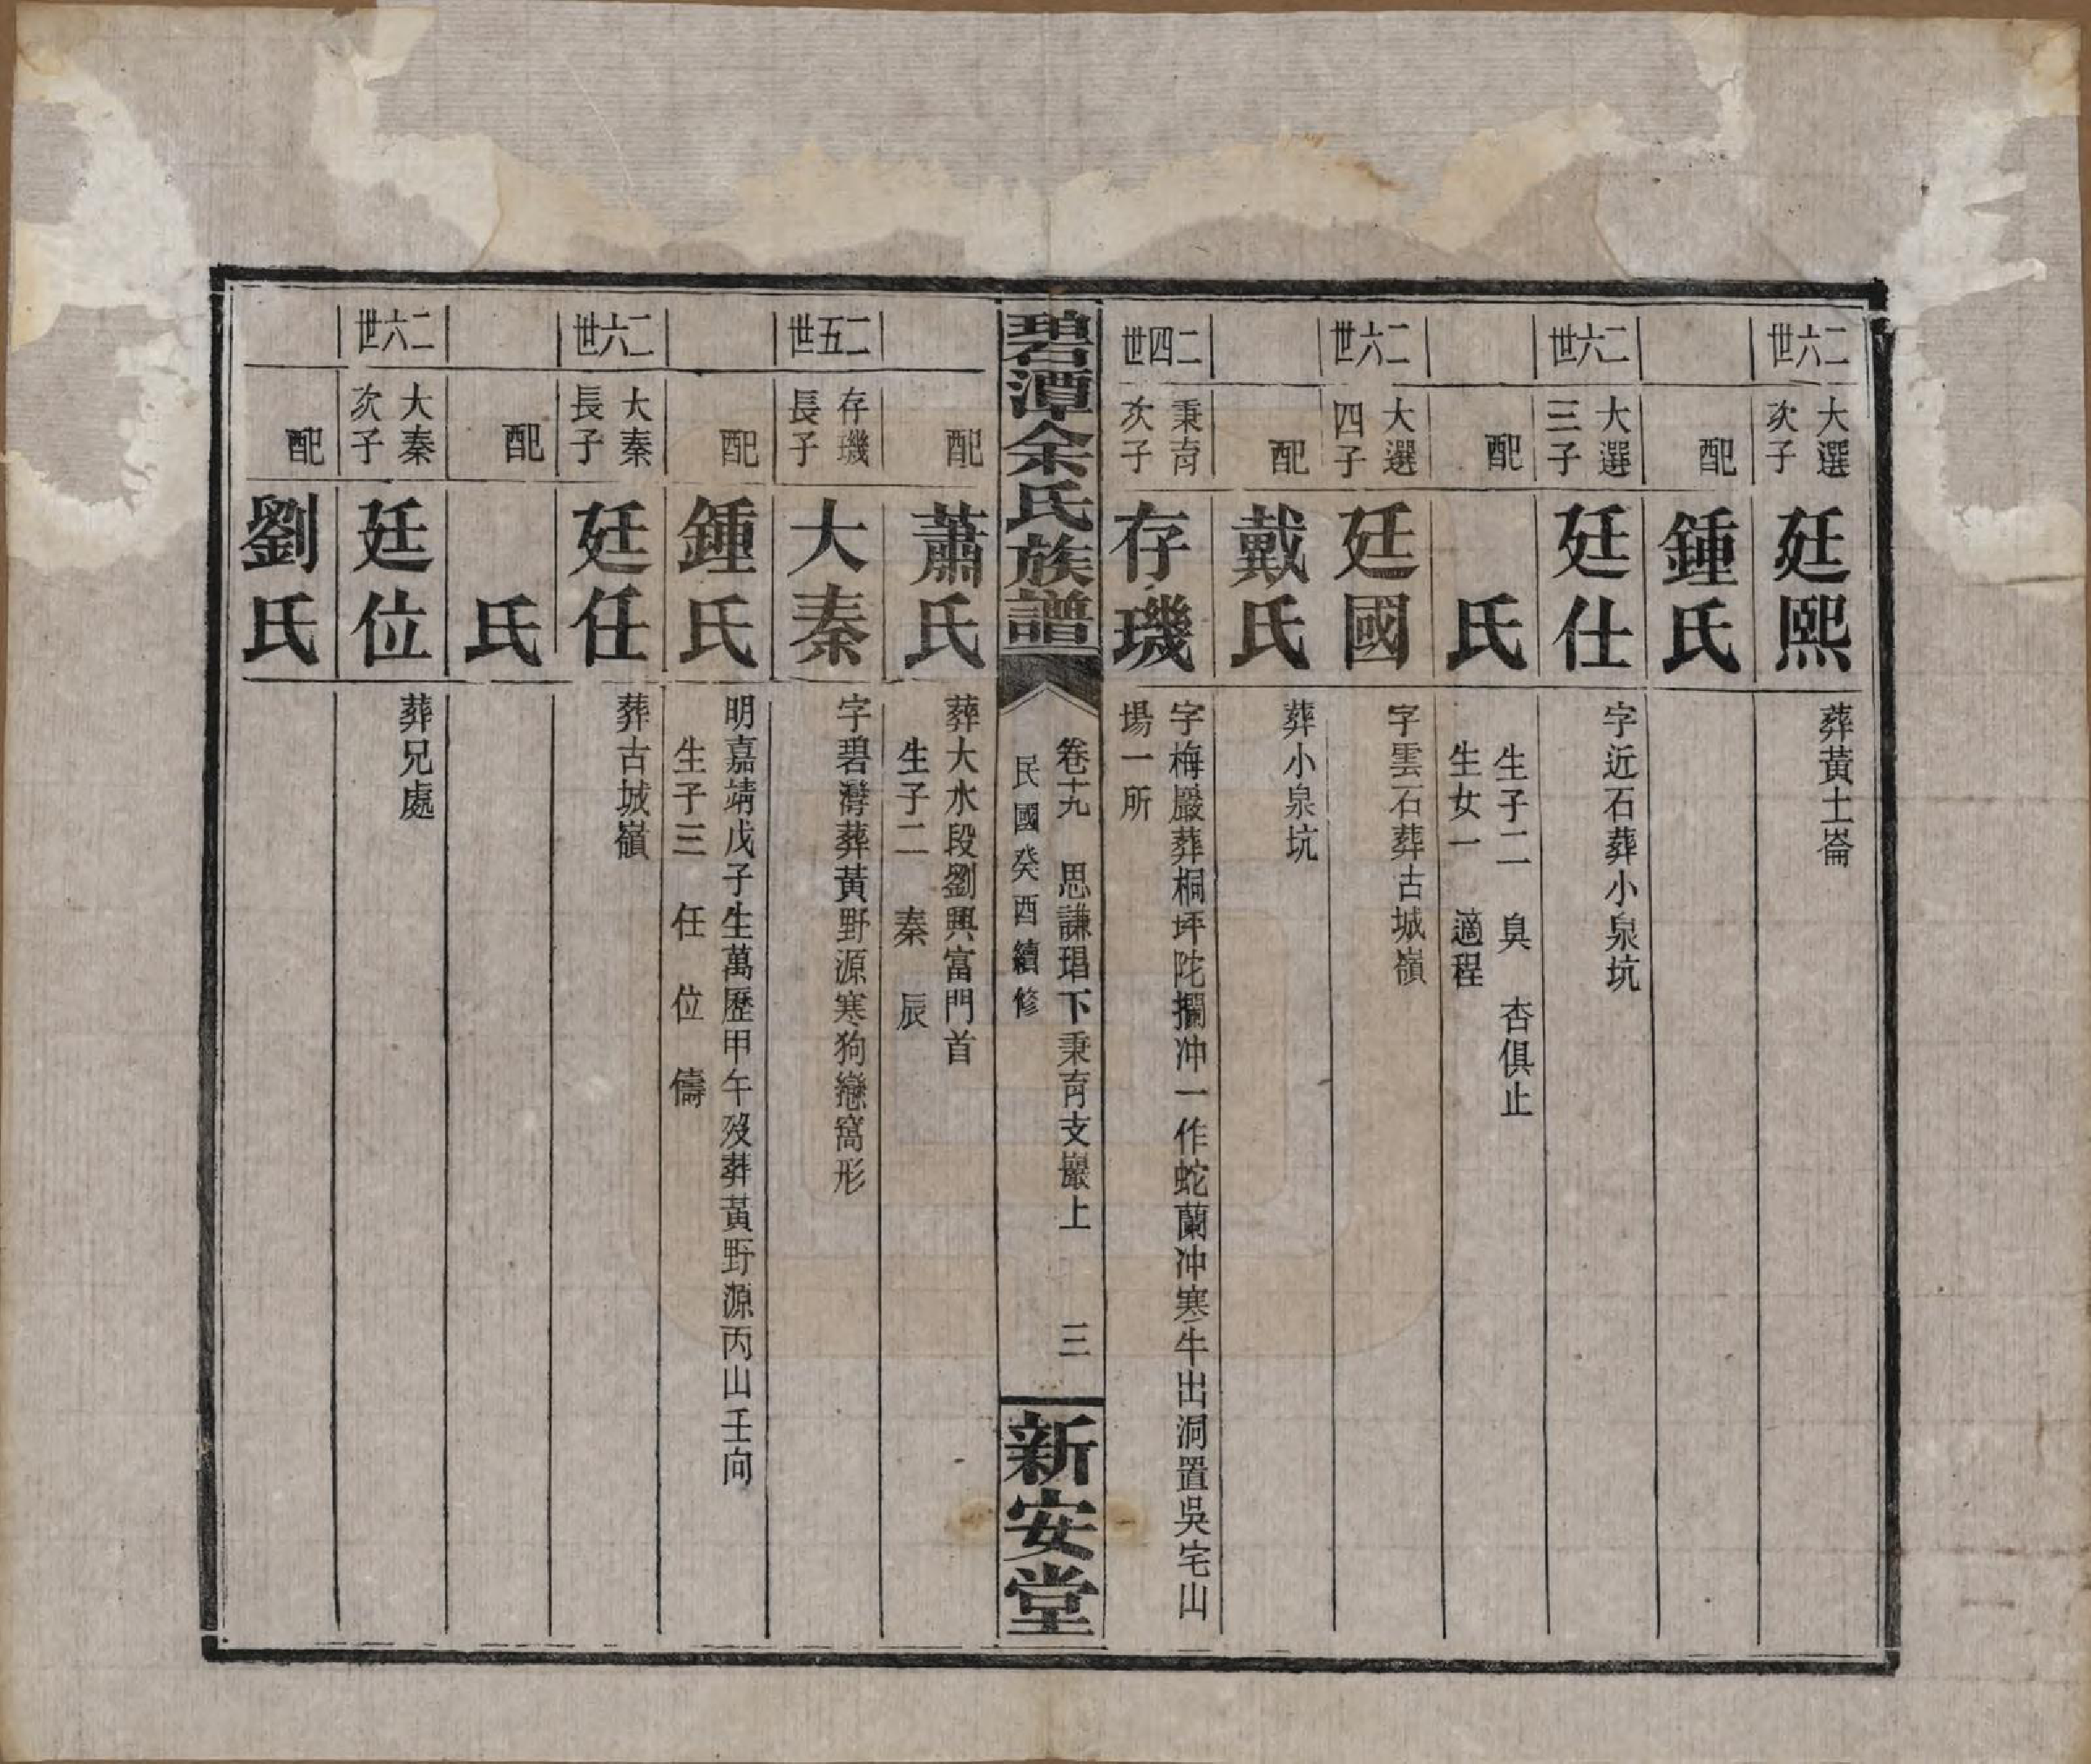 二六世
大選
次子
廷熙
葬黃土崙
配
鍾氏
二六世
大選
三子
廷仕
字近石葬小泉坑
配
氏
生子二 臭 杏俱止
生女一 適程
二六世
大選
四子
廷國
字雲石葬古城嶺
配
戴氏
葬小泉坑
二四世
秉育
次子
存璣
字梅巖葬桐坪陀攔冲一作蛇蘭冲寒牛出洞置吳宅山
場一所
碧潭余氏族譜
卷十九 思謙琩下秉育支巖上 三
民國癸酉續修
新安堂
配
蕭氏
葬大水段劉興富門首
生子二 秦 辰
二五世
存璣
長子
大秦
字碧灣葬黃野源寒狗戀窩形
配
鍾氏
明嘉靖戊子生萬歷甲午歿葬黃野源丙山壬向
生子三 任 位 儔
二六世
大秦
長子
廷任
葬古城嶺
配
氏
二六世
大秦
次子
廷位
葬兄處
配
劉氏